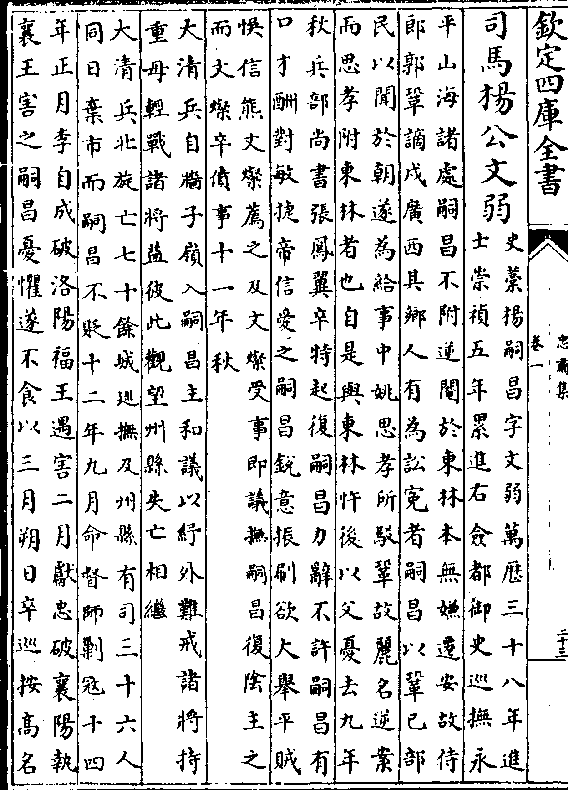 欽定四庫全書
忠肅集
卷一
二十三
司馬楊公文弱
史藁楊嗣昌字文弱萬歷三十八年進
士崇禎五年累進右僉都御史巡撫永
平山海諸處嗣昌不附逆閹於東林本無嫌遷安故侍
郎郭鞏謫戍廣西其鄉人有為訟寃者嗣昌以鞏已部
民以聞於朝遂為給事中姚思孝所駮鞏故麗名逆案
而思孝附東林者也自是與東林忤後以父憂去九年
秋兵部尚書張鳳翼卒特起復嗣昌力辭不許嗣昌有
口才酬對敏捷帝信愛之嗣昌銳意振刷欲大舉平賊
悞信熊文燦薦之及文燦受事即議撫嗣昌復陰主之
而文燦卒僨事十一年秋
大清兵自牆子嶺入嗣昌主和議以紓外難戒諸將持
重毋輕戰諸將益彼此觀望州縣失亡相繼
大清兵北旋亡七十餘城巡撫及州縣有司三十六人
同日棄市而嗣昌不貶十二年九月命督師剿寇十四
年正月李自成破洛陽福王遇害二月獻忠破襄陽執
襄王害之嗣昌憂懼遂不食以三月朔日卒巡按高名